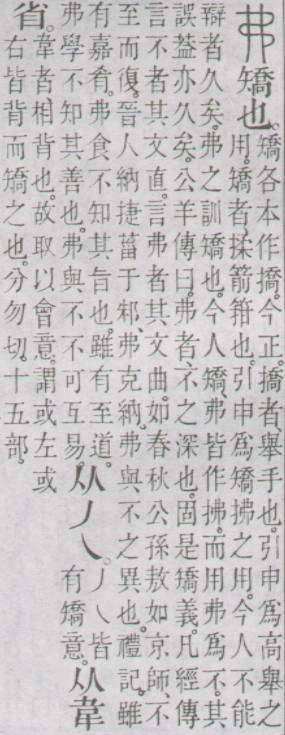 弗 矯也。
矯各本作撟。今正。撟者、舉手也。引申爲高舉之
用。矯者、揉箭箝也。引申爲矯拂之用。今人不能
辯者久矣。弗之訓矯也。今人矯、弗皆作拂。而用弗爲不。其
誤葢亦久矣。公羊傳曰。弗者、不之深也。固是矯義。凡經傳
言不者其文直。言弗者其文曲。如春秋公孫敖如京師、不
至而復。晉人納捷菑于邾、弗克納。弗與不之異也。禮記。雖
有嘉肴。弗食不知其旨也。雖有至道。
弗學不知其善也。弗與不不可互易。
从丿乀。
丿乀皆
有矯意。
从韋
省。
韋者、相背也。故取以會意。謂或左或
右皆背而矯之也。分勿切。十五部。